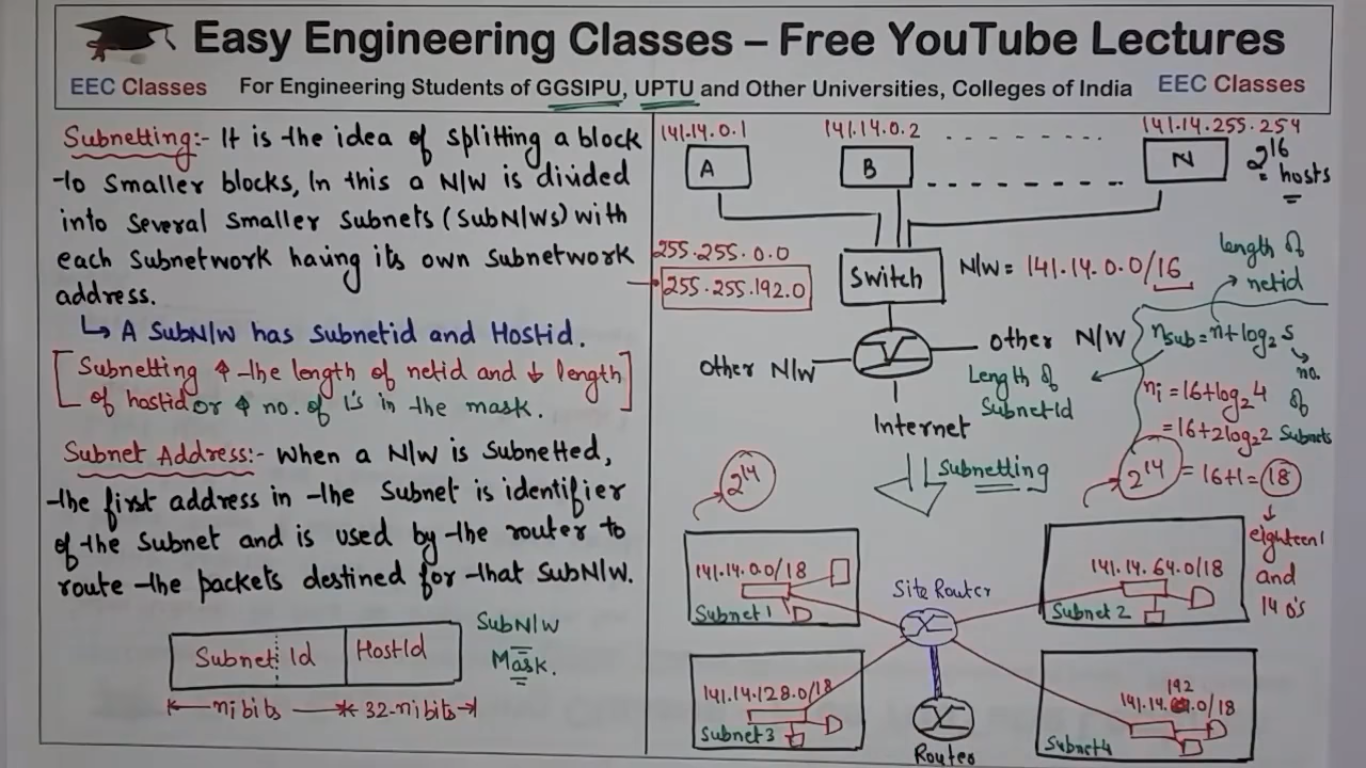 Easy Engineering Classes – Free YouTube Lectures
EEC Classes For Engineering Students of GGSIPU, UPTU and Other Universities, Colleges of India EEC Classes
Subnetting:- It is the idea of splitting a block
to smaller blocks, In this a N/W is divided
into several smaller subnets (SubN/Ws) with
each subnetwork having its own subnetwork
address.
↳ A SubN/W has subnetid and Hostid.
[Subnetting ↑ the length of netid and ↓ length
of hostid or ↑ no. of 1's in the mask.]
Subnet Address:- When a N/W is Subnetted,
the first address in the subnet is identifier
of the subnet and is used by the router to
route the packets destined for that SubN/W.
Subnet Id HostId
SubN/W
Mask.
ni bits 32-ni bits
141.14.0.1 141.14.0.2 141.14.255.254
A B N
2^16
hosts
255.255.0.0
255.255.192.0
Switch
N/W = 141.14.0.0/16
length of
netid
Other N/W
Other N/W
Internet
nsub = n + log₂ s
no.
of
Subnets
Length of
SubnetId
ni = 16+log₂4
= 16+2log₂2
= 16+1 = 18
eighteen 1
and
14 0's
Subnetting
2^14
2^14
141.14.0.0/18
Subnet 1
141.14.64.0/18
Subnet 2
Site Router
141.14.128.0/18
Subnet 3
192
141.14. .0/18
Subnet 4
Router